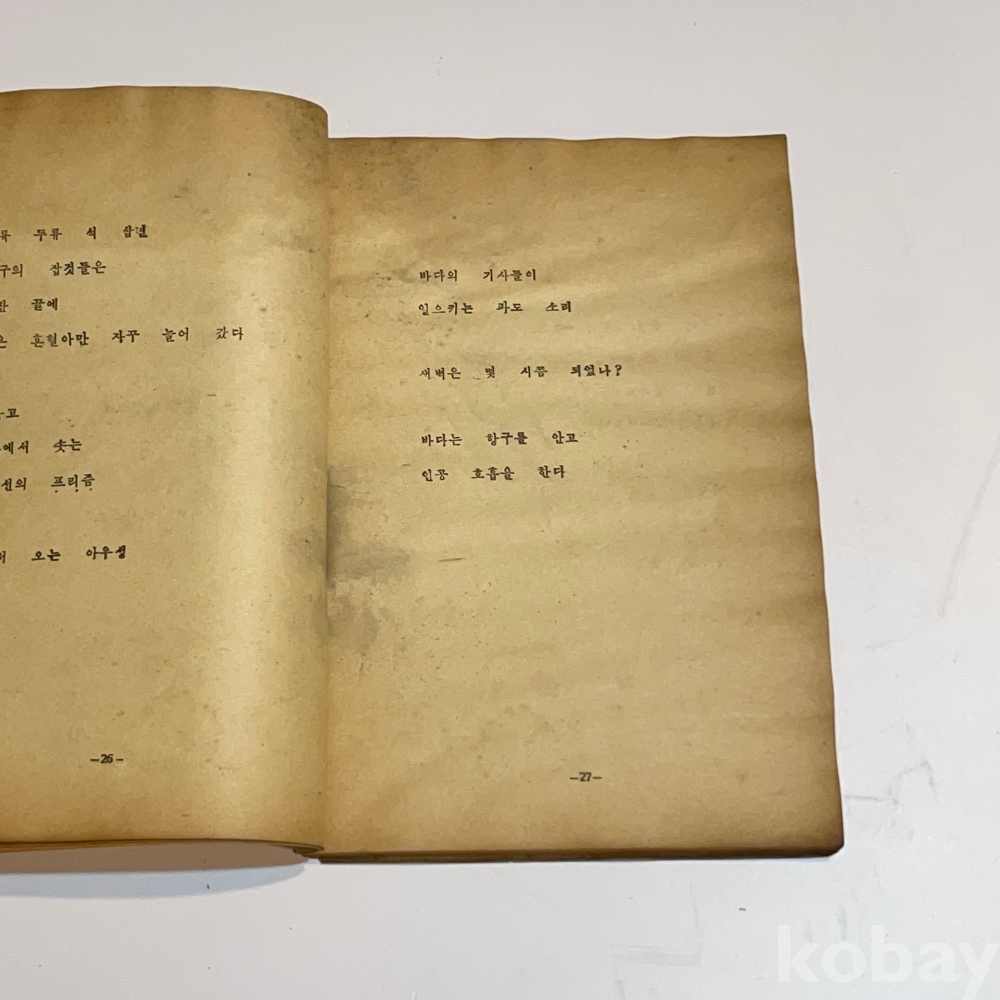 두류 석 삼년
잡것들은
끝에
혼혈아만 자꾸 늘어 갔다
솟는
프리즘
오는 아우성
—26—
바다의 기사들이
일으키는 파도 소리
새벽은 몇 시쯤 되었나?
바다는 항구를 안고
인공 호흡을 한다
—27—
kobay